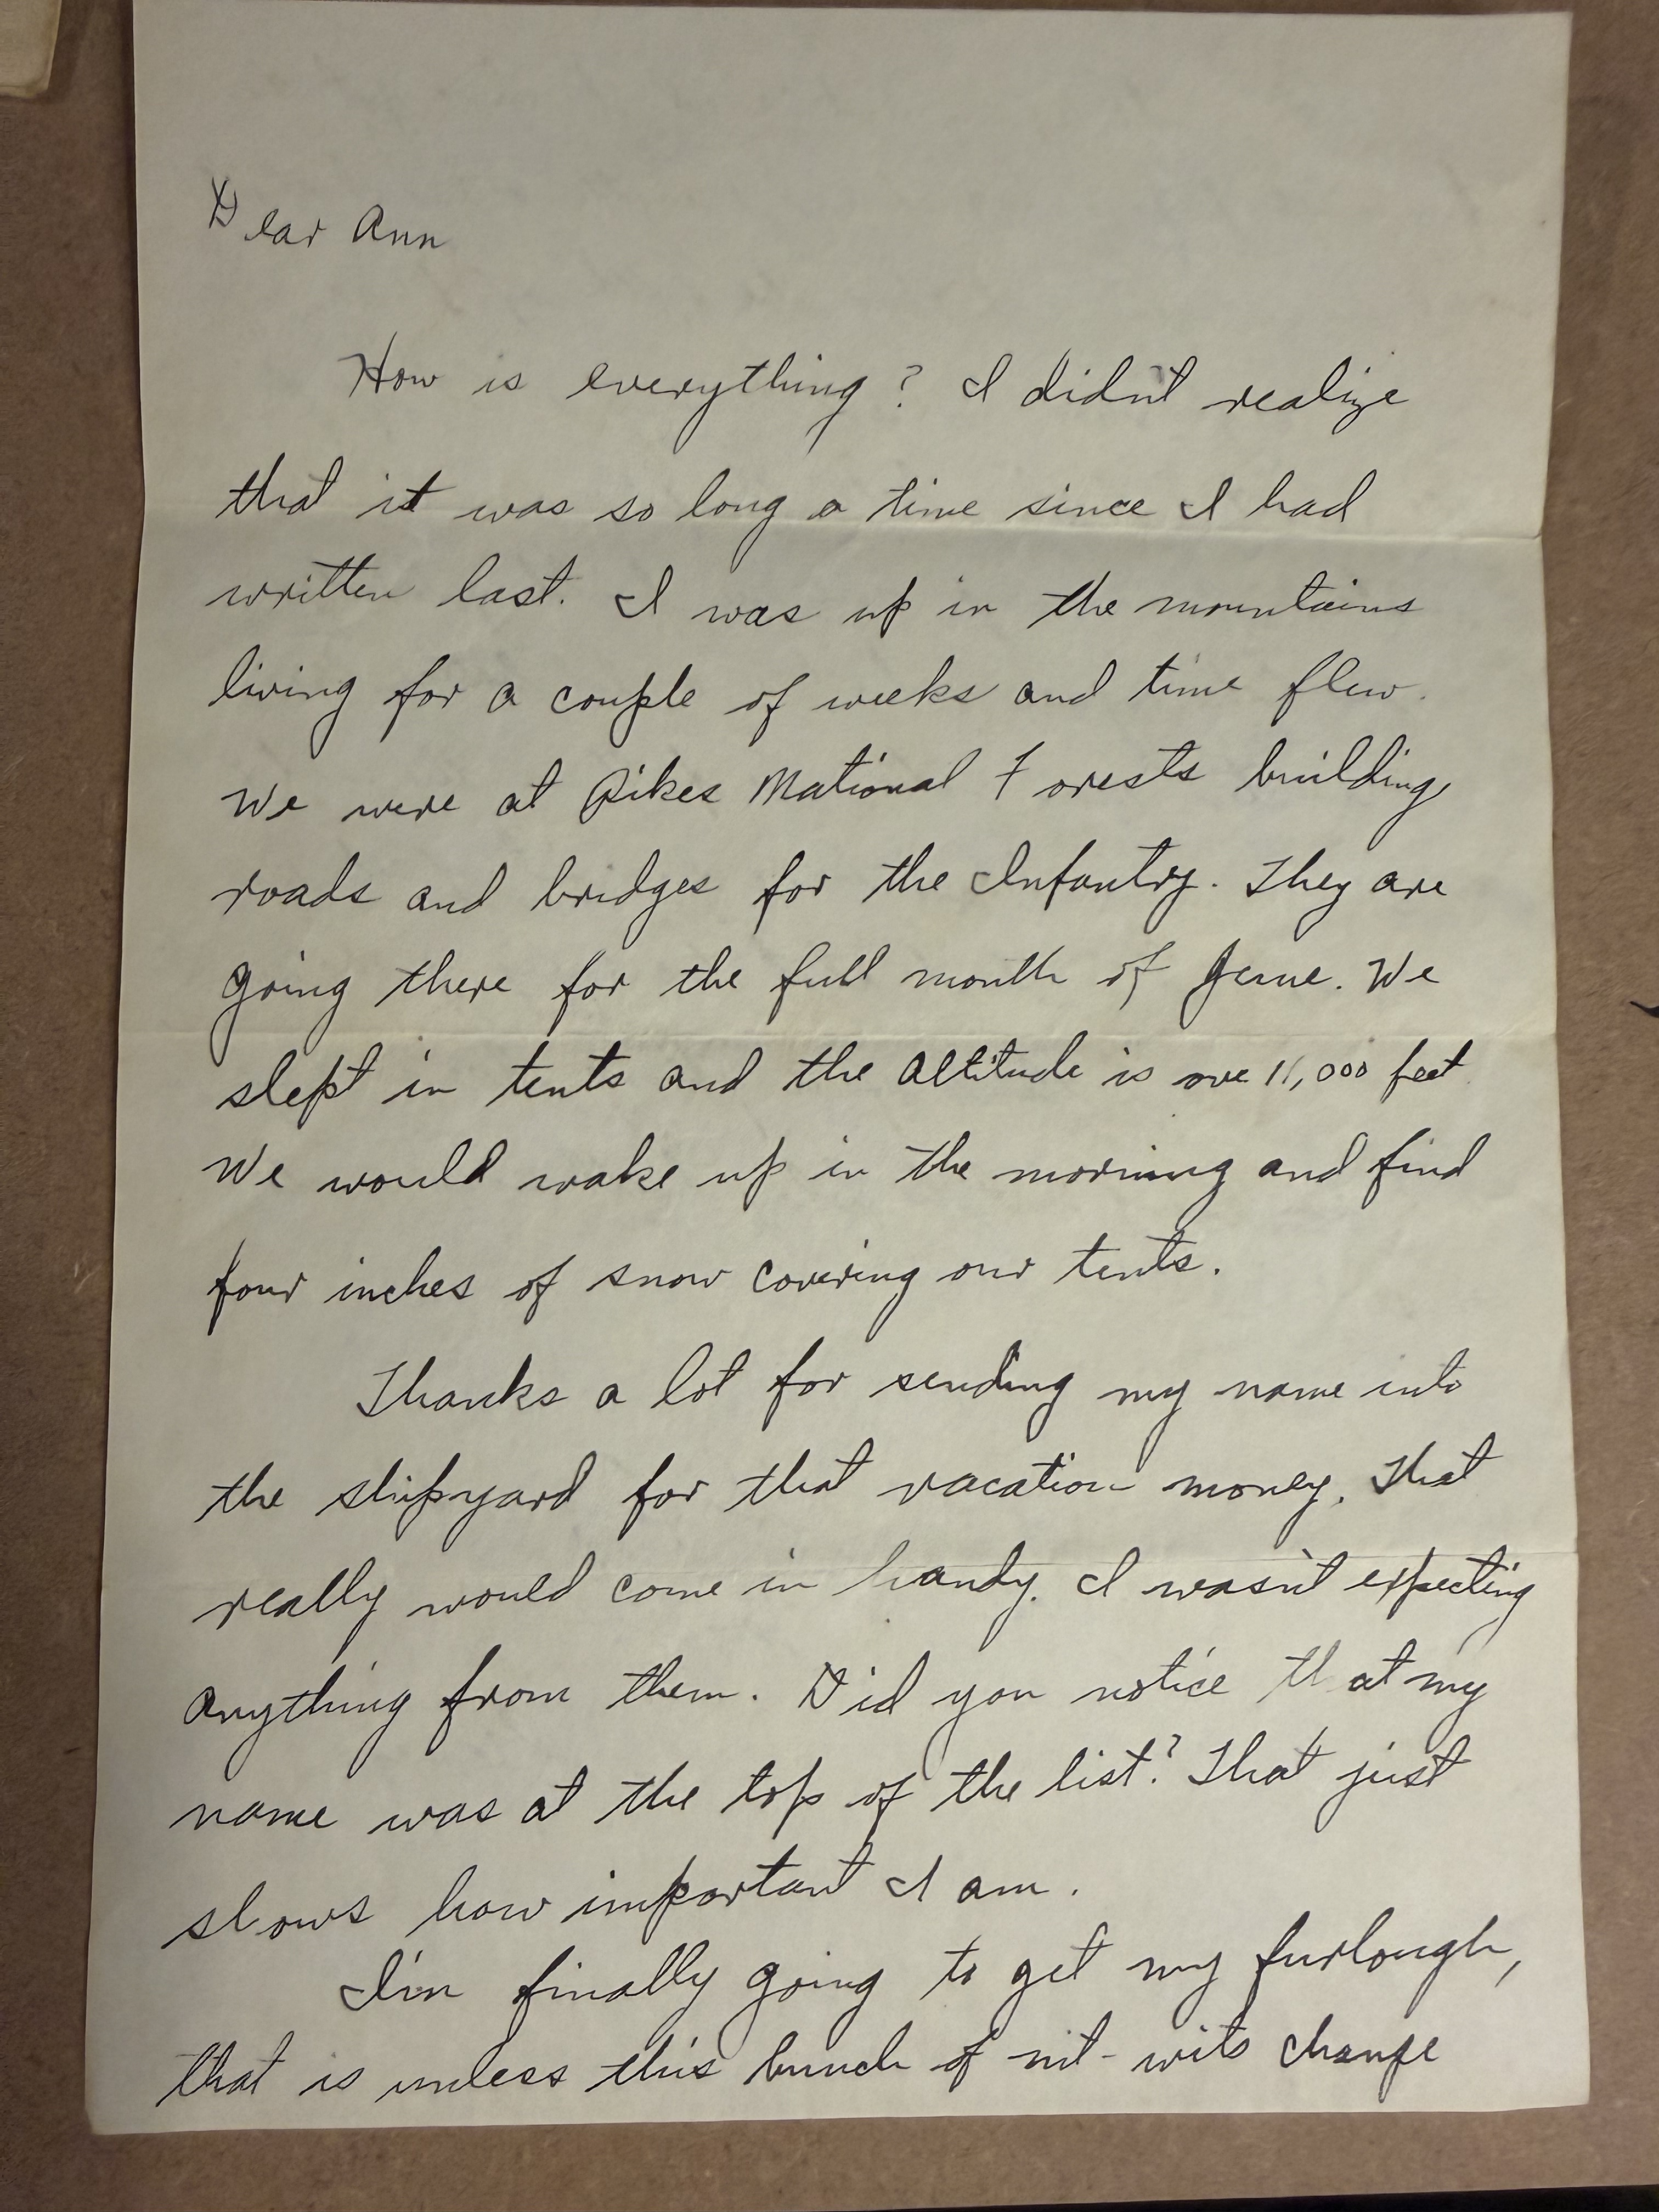 Dear Ann
How is everything? I didn't realize
that it was so long a time since I had
written last. I was up in the mountains
living for a couple of weeks and time flew.
We were at Pikes National Forests building
roads and bridges for the Infantry. They are
going there for the full month of June. We
slept in tents and the altitude is ove 11,000 feet
We would wake up in the morning and find
four inches of snow covering our tents.
Thanks a lot for sending my name into
the shipyard for that vacation money. That
really would come in handy. I wasn't expecting
anything from them. Did you notice that my
name was at the top of the list? That just
shows how important I am.
I'm finally going to get my furlough,
that is unless this bunch of nit-wits change